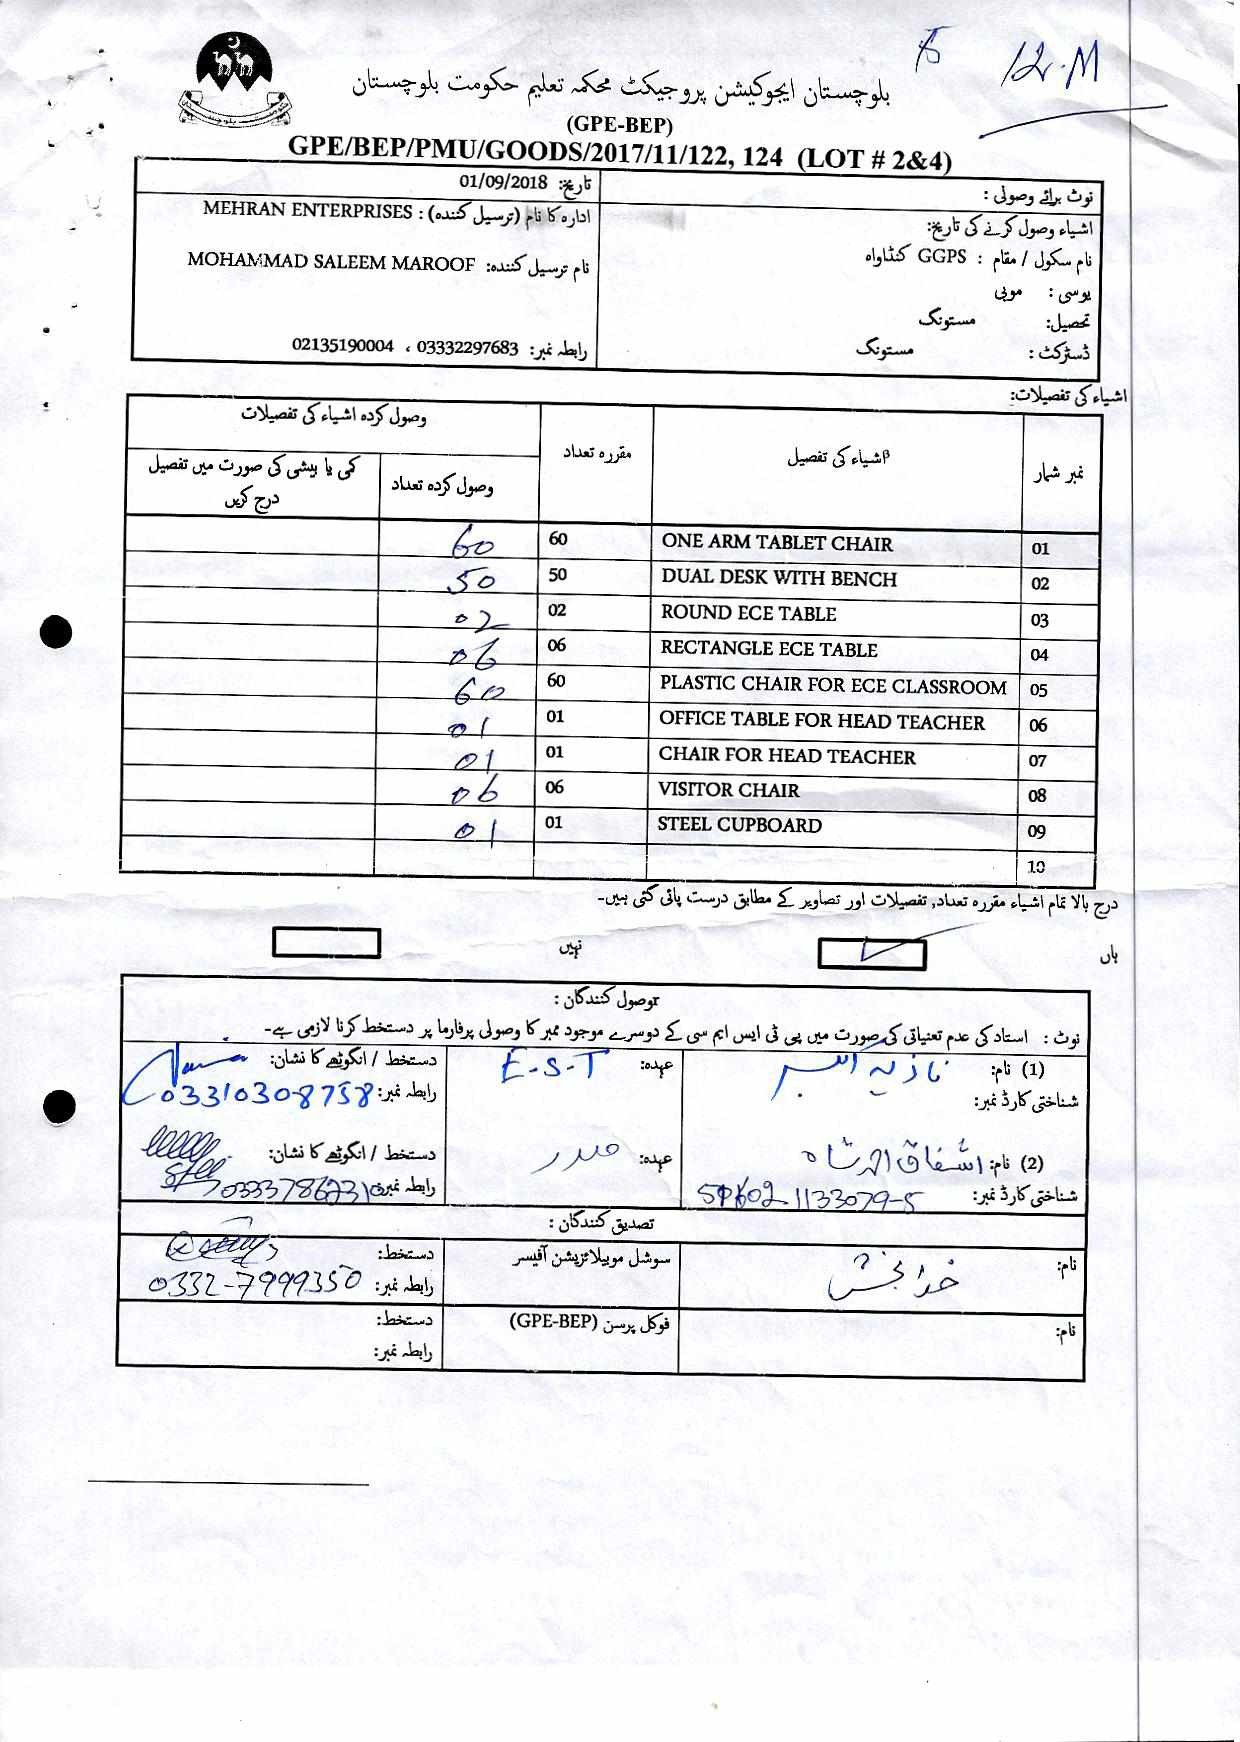 12-M
بلوچستان ایجوکیشن پروجیکٹ محکمہ تعلیم حکومت بلوچستان
(GPE-BEP)
GPE/BEP/PMU/GOODS/2017/11/122, 124 (LOT # 2&4)
نوٹ برائے وصولی :
تاریخ: 01/09/2018
اشیاء وصول کرنے کی تاریخ:
ادارہ کا نام (ترسیل کنندہ) : MEHRAN ENTERPRISES
نام سکول / مقام : GGPS کنڈاواہ
نام ترسیل کنندہ: MOHAMMAD SALEEM MAROOF
یوسی : موبی
تحصیل: مستونگ
ڈسٹرکٹ : مستونگ
رابطہ نمبر: 03332297683 ، 02135190004
اشیاء کی تفصیلات:
نمبر شمار اشیاء کی تفصیل مقررہ تعداد وصول کردہ اشیاء کی تفصیلات
وصول کردہ تعداد کمی یا بیشی کی صورت میں تفصیل درج کریں
01 ONE ARM TABLET CHAIR 60 60
02 DUAL DESK WITH BENCH 50 50
03 ROUND ECE TABLE 02 02
04 RECTANGLE ECE TABLE 06 06
05 PLASTIC CHAIR FOR ECE CLASSROOM 60 60
06 OFFICE TABLE FOR HEAD TEACHER 01 01
07 CHAIR FOR HEAD TEACHER 01 01
08 VISITOR CHAIR 06 06
09 STEEL CUPBOARD 01 01
10
درج بالا تمام اشیاء مقررہ تعداد, تفصیلات اور تصاویر کے مطابق درست پائی گئی ہیں۔
ہاں نہیں
وصول کنندگان :
نوٹ : استاد کی عدم تعنیاتی کی صورت میں پی ٹی ایس ایم سی کے دوسرے موجود ممبر کا وصولی پرفارما پر دستخط کرنا لازمی ہے۔
(1) نام: نازیہ عہدہ: E-S-T دستخط / انگوٹھے کا نشان:
شناختی کارڈ نمبر: رابطہ نمبر: 03310308758
(2) نام: اشفاق احمد شاہ عہدہ: صدر دستخط / انگوٹھے کا نشان:
شناختی کارڈ نمبر: رابطہ نمبر:
تصدیق کنندگان :
نام: خدا بخش سوشل موبیلائزیشن آفیسر دستخط:
رابطہ نمبر: 0332-7999350
نام: فوکل پرسن (GPE-BEP) دستخط:
رابطہ نمبر: